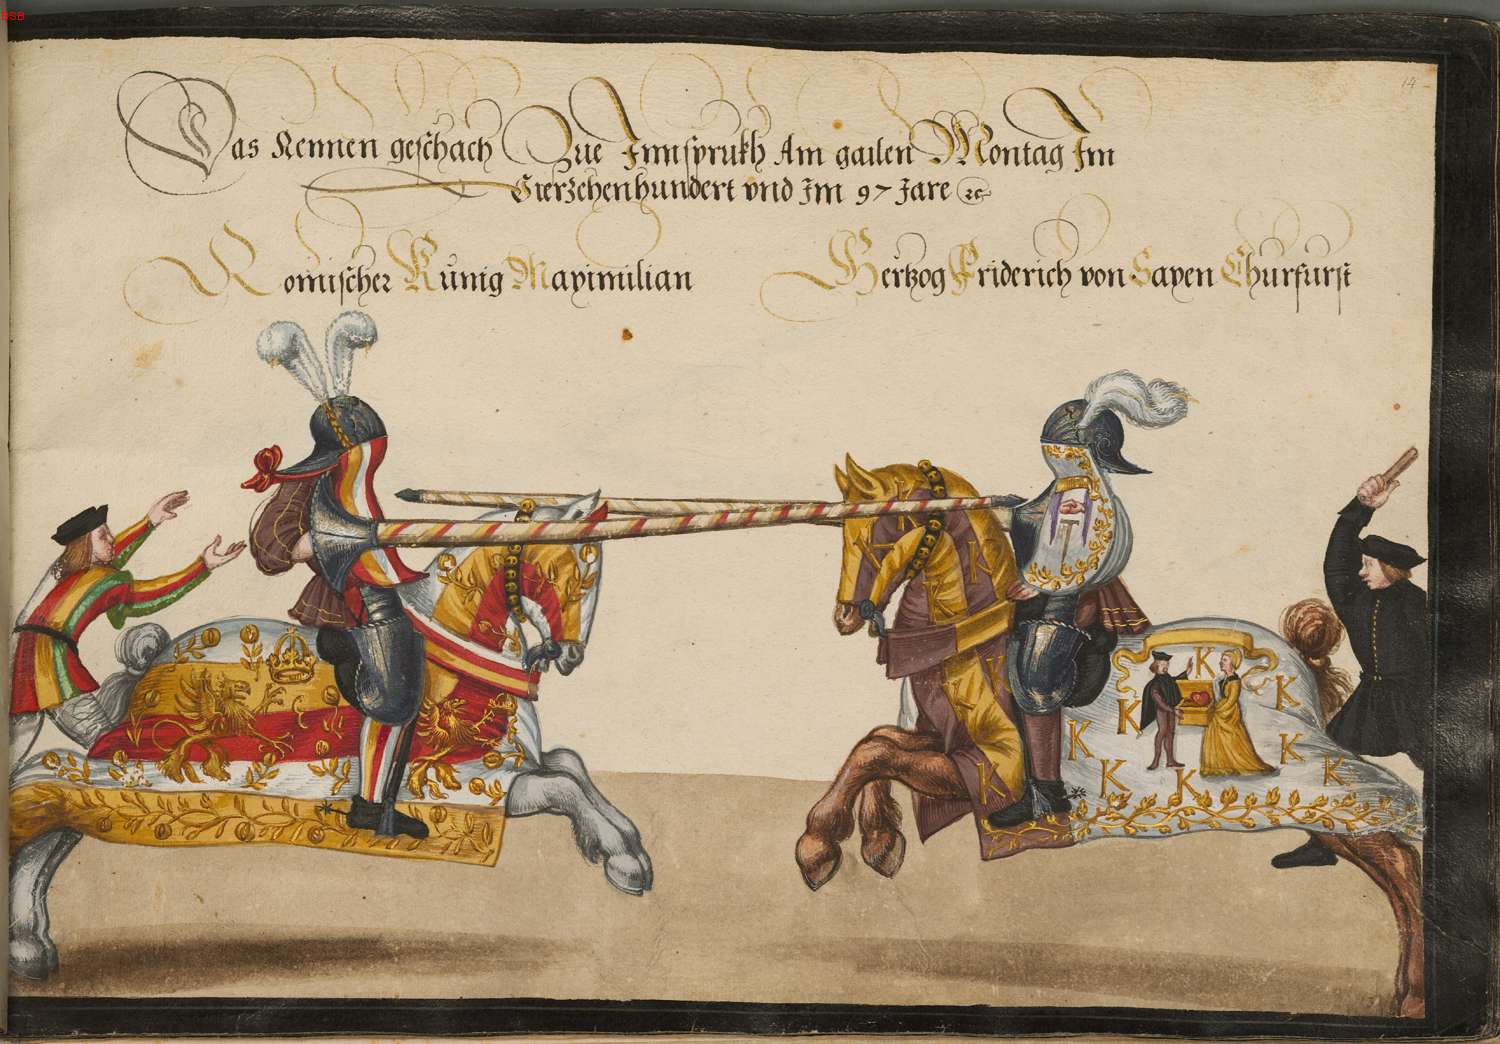 BSB
14
Das Rennen geschach Zue Jnnsprukh Am gailen Montag Jm
Vierzehenhundert vnd Jm 97 Jare ꝛc
Romischer Kunig Maximilian
Hertzog Friderich von Saxen Churfurst
K K K K K K K K K K K K K